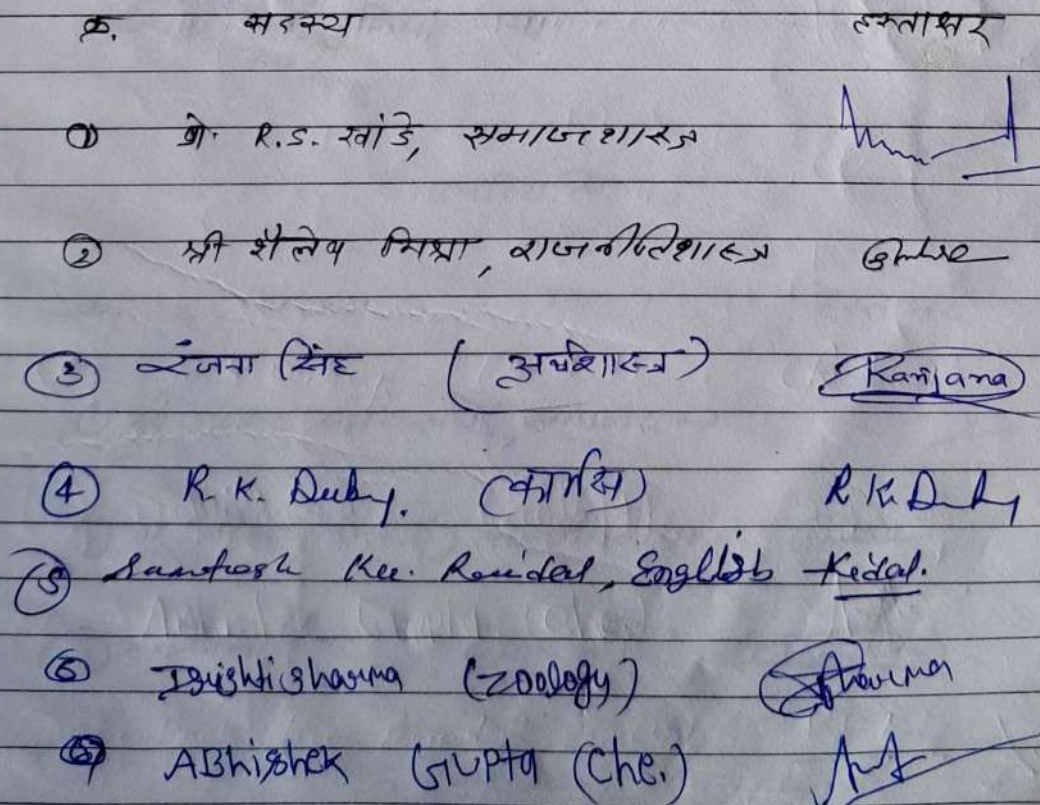 क्र. सदस्य हस्ताक्षर
① प्रो. R.S. खांडे, समाजशास्त्र
② श्री शैलेष मिश्रा, राजनीतिशास्त्र
③ रंजना सिंह (अर्थशास्त्र) Ranjana
④ R. K. Dubey. R K Dubey
⑤ Santosh Ku. English
⑥ Drishti sharma (Zoology) Sharma
ABhishek GUPta (Che.)